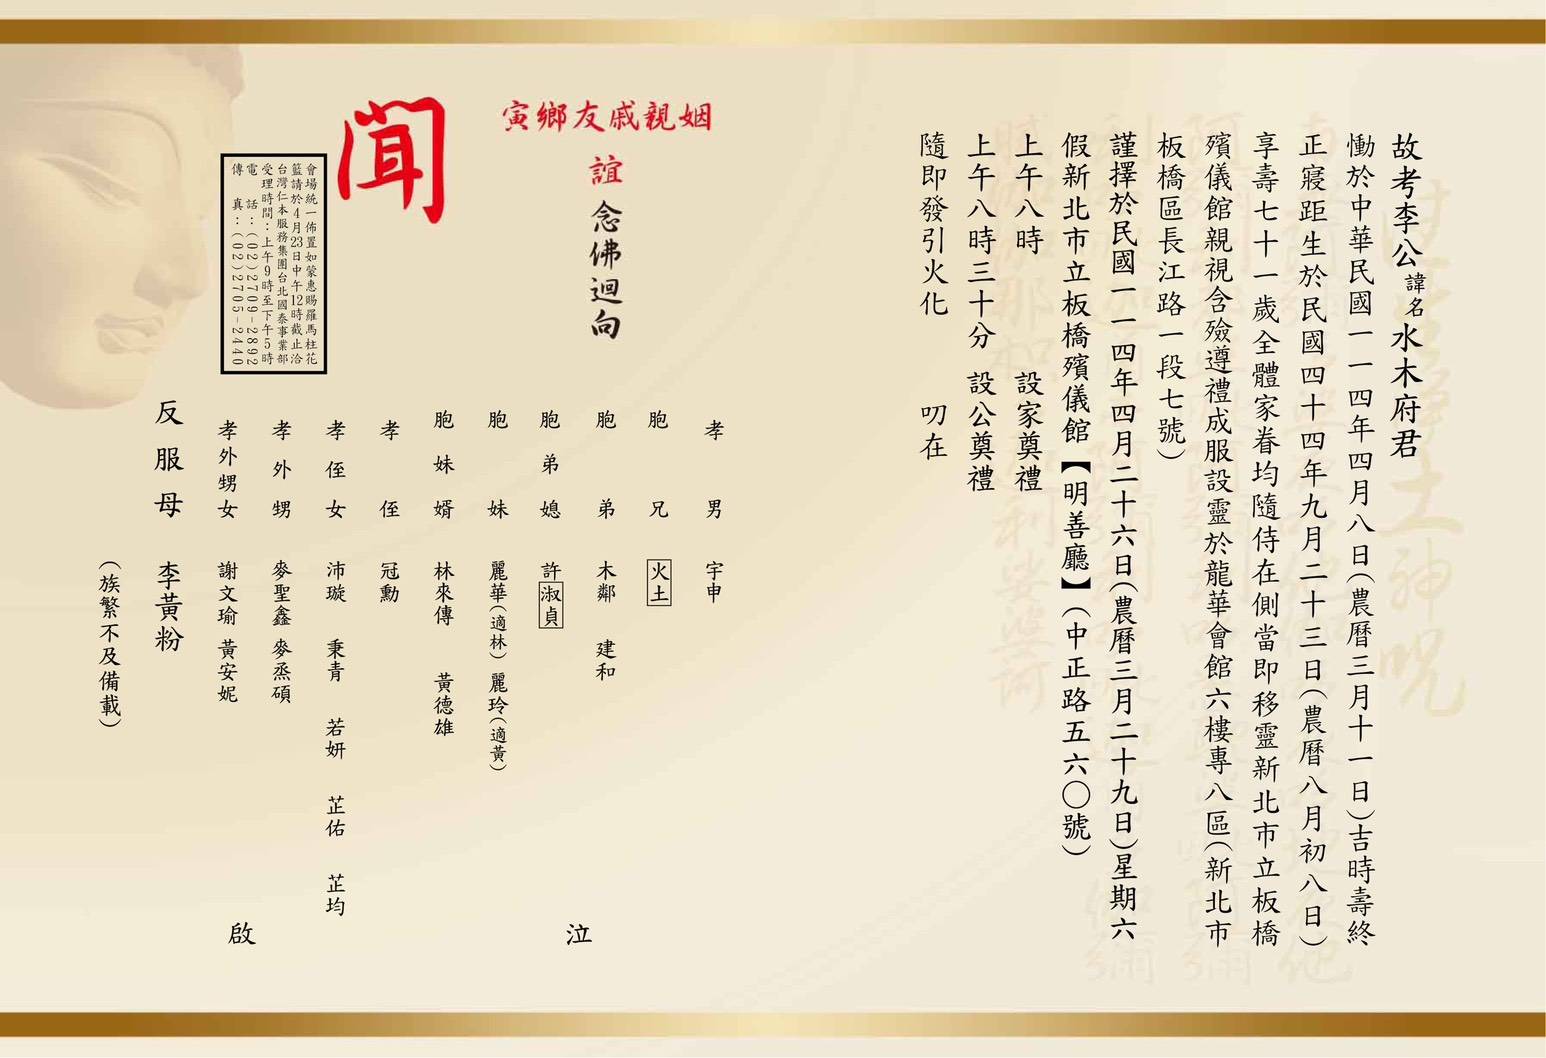 故考李公諱名水木府君
慟於中華民國一一四年四月八日(農曆三月十一日)吉時壽終
正寢距生於民國四十四年九月二十三日(農曆八月初八日)
享壽七十一歲全體家眷均隨侍在側當即移靈新北市立板橋
殯儀館親視含殮遵禮成服設靈於龍華會館六樓專八區(新北市
板橋區長江路一段七號)
謹擇於民國一一四年四月二十六日(農曆三月二十九日)星期六
假新北市立板橋殯儀館【明善廳】(中正路五六〇號)
上午八時 設家奠禮
上午八時三十分 設公奠禮
隨即發引火化 叨在
姻親戚友鄉寅
誼念佛迴向
聞
會場統一佈置如蒙惠賜羅馬柱花
籃請於4月23日中午12時截止洽
台灣仁本服務集團台北國泰事業部
受理時間：上午9時至下午5時
電話：(02)2709-2892
傳真：(02)2705-2440
孝男 宇申
胞兄 火土
胞弟 木鄰 建和
胞弟媳 許淑貞
胞妹 麗華(適林) 麗玲(適黃)
胞妹婿 林來傳 黃德雄
孝侄 冠勳
孝侄女 沛璇 秉青 若妍 芷佑 芷均
孝外甥 麥聖鑫 麥烝碩
孝外甥女 謝文瑜 黃安妮
反服母 李黃粉
(族繁不及備載)
泣
啟